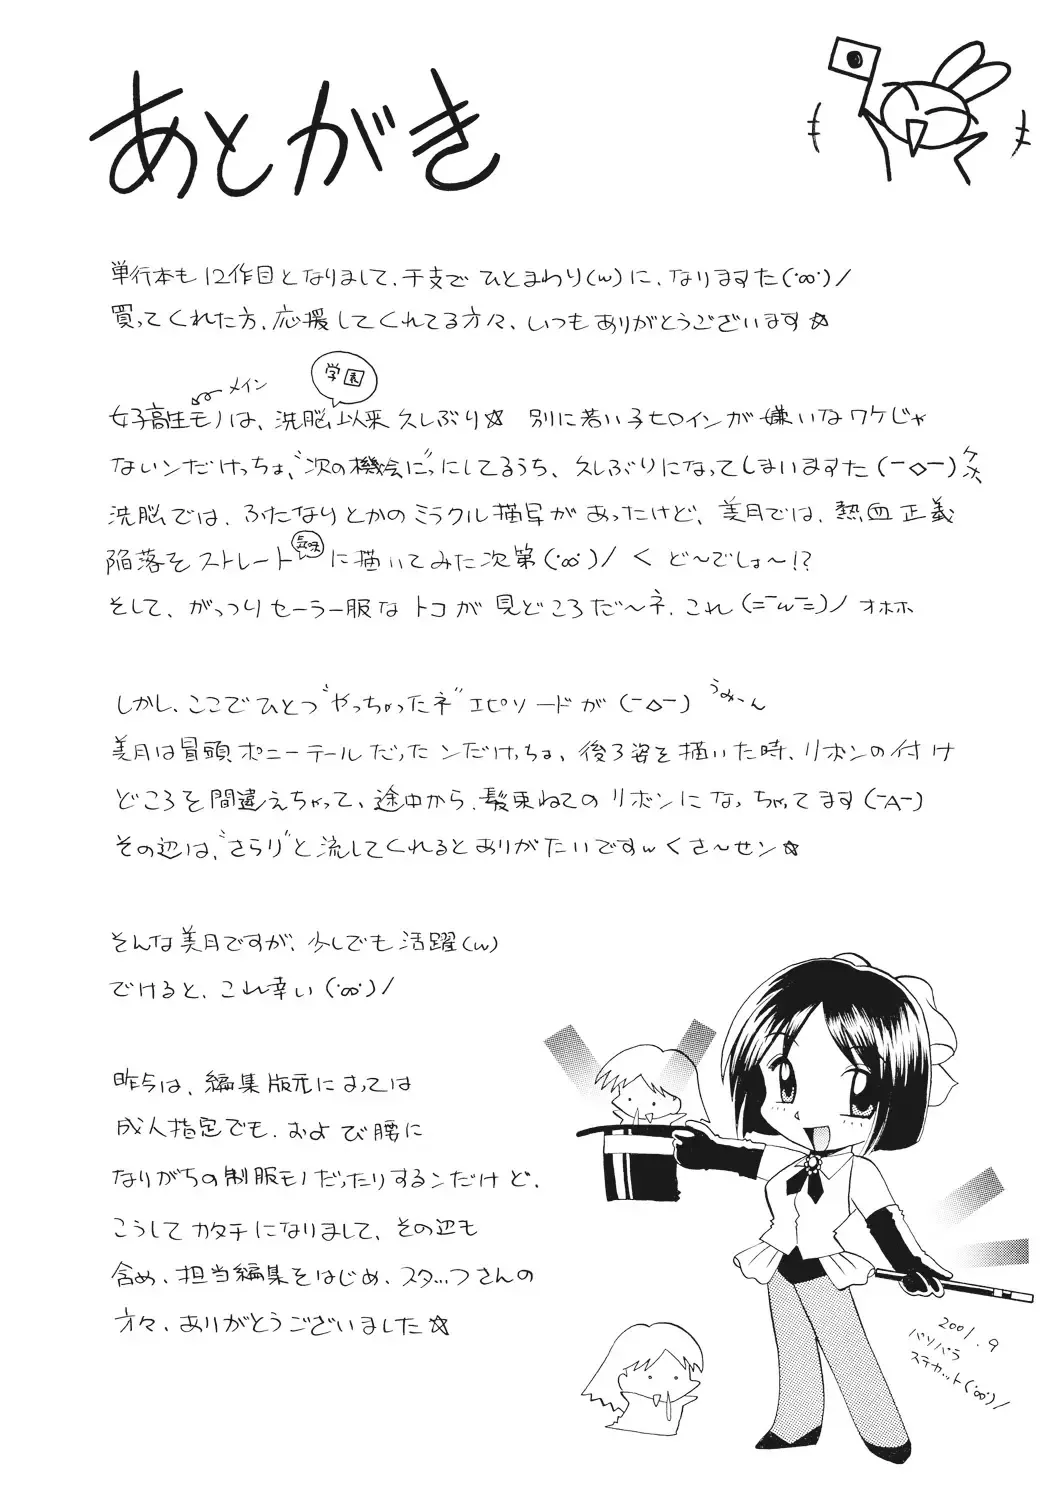 あとがき
単行本も12作目となりまして、干支でひとまわり(w)に、なりますた(･∞･)/
買ってくれた方、応援してくれてる方々、いつもありがとうございます☆
メイン
学園
女子高生モノは、洗脳以来久しぶり☆ 別に若い子ヒロインが嫌いなワケじゃ
ないンだけっちょ、“次の機会に”っにしてるうち、久しぶりになってしまいますた(-◇-)
洗脳では、ふたなりとかのミラクル描写があったけど、美月では、熱血正義
陥落をストレート気味に描いてみた次第(･∞･)/ く ど〜でしょ〜!?
そして、がっつりセーラー服なトコが見どころだ〜ネ、これ(=¯w¯=)/ オホホ
しかし、ここでひとつ“やっちゃったネ”エピソードが(-◇-) うみーん
美月は冒頭ポニーテールだったンだけっちょ、後ろ姿を描いた時、リボンの付け
どころを間違えちゃって、途中から、髪束ねてのリボンになっちゃってます(-A-)
その辺は、“さらり”と流してくれるとありがたいですw くさ〜せン☆
そんな美月ですが、少しでも活躍(w)
でけると、これ幸い(･∞･)/
昨今は、編集版元によっては
成人指定でも、および腰に
なりがちの制服モノだったりするンだけど、
こうしてカタチになりまして、その辺も
含め、担当編集をはじめ、スタッフさんの
方々、ありがとうございました☆
2001.9
バソバラ
ステカット(･∞･)/